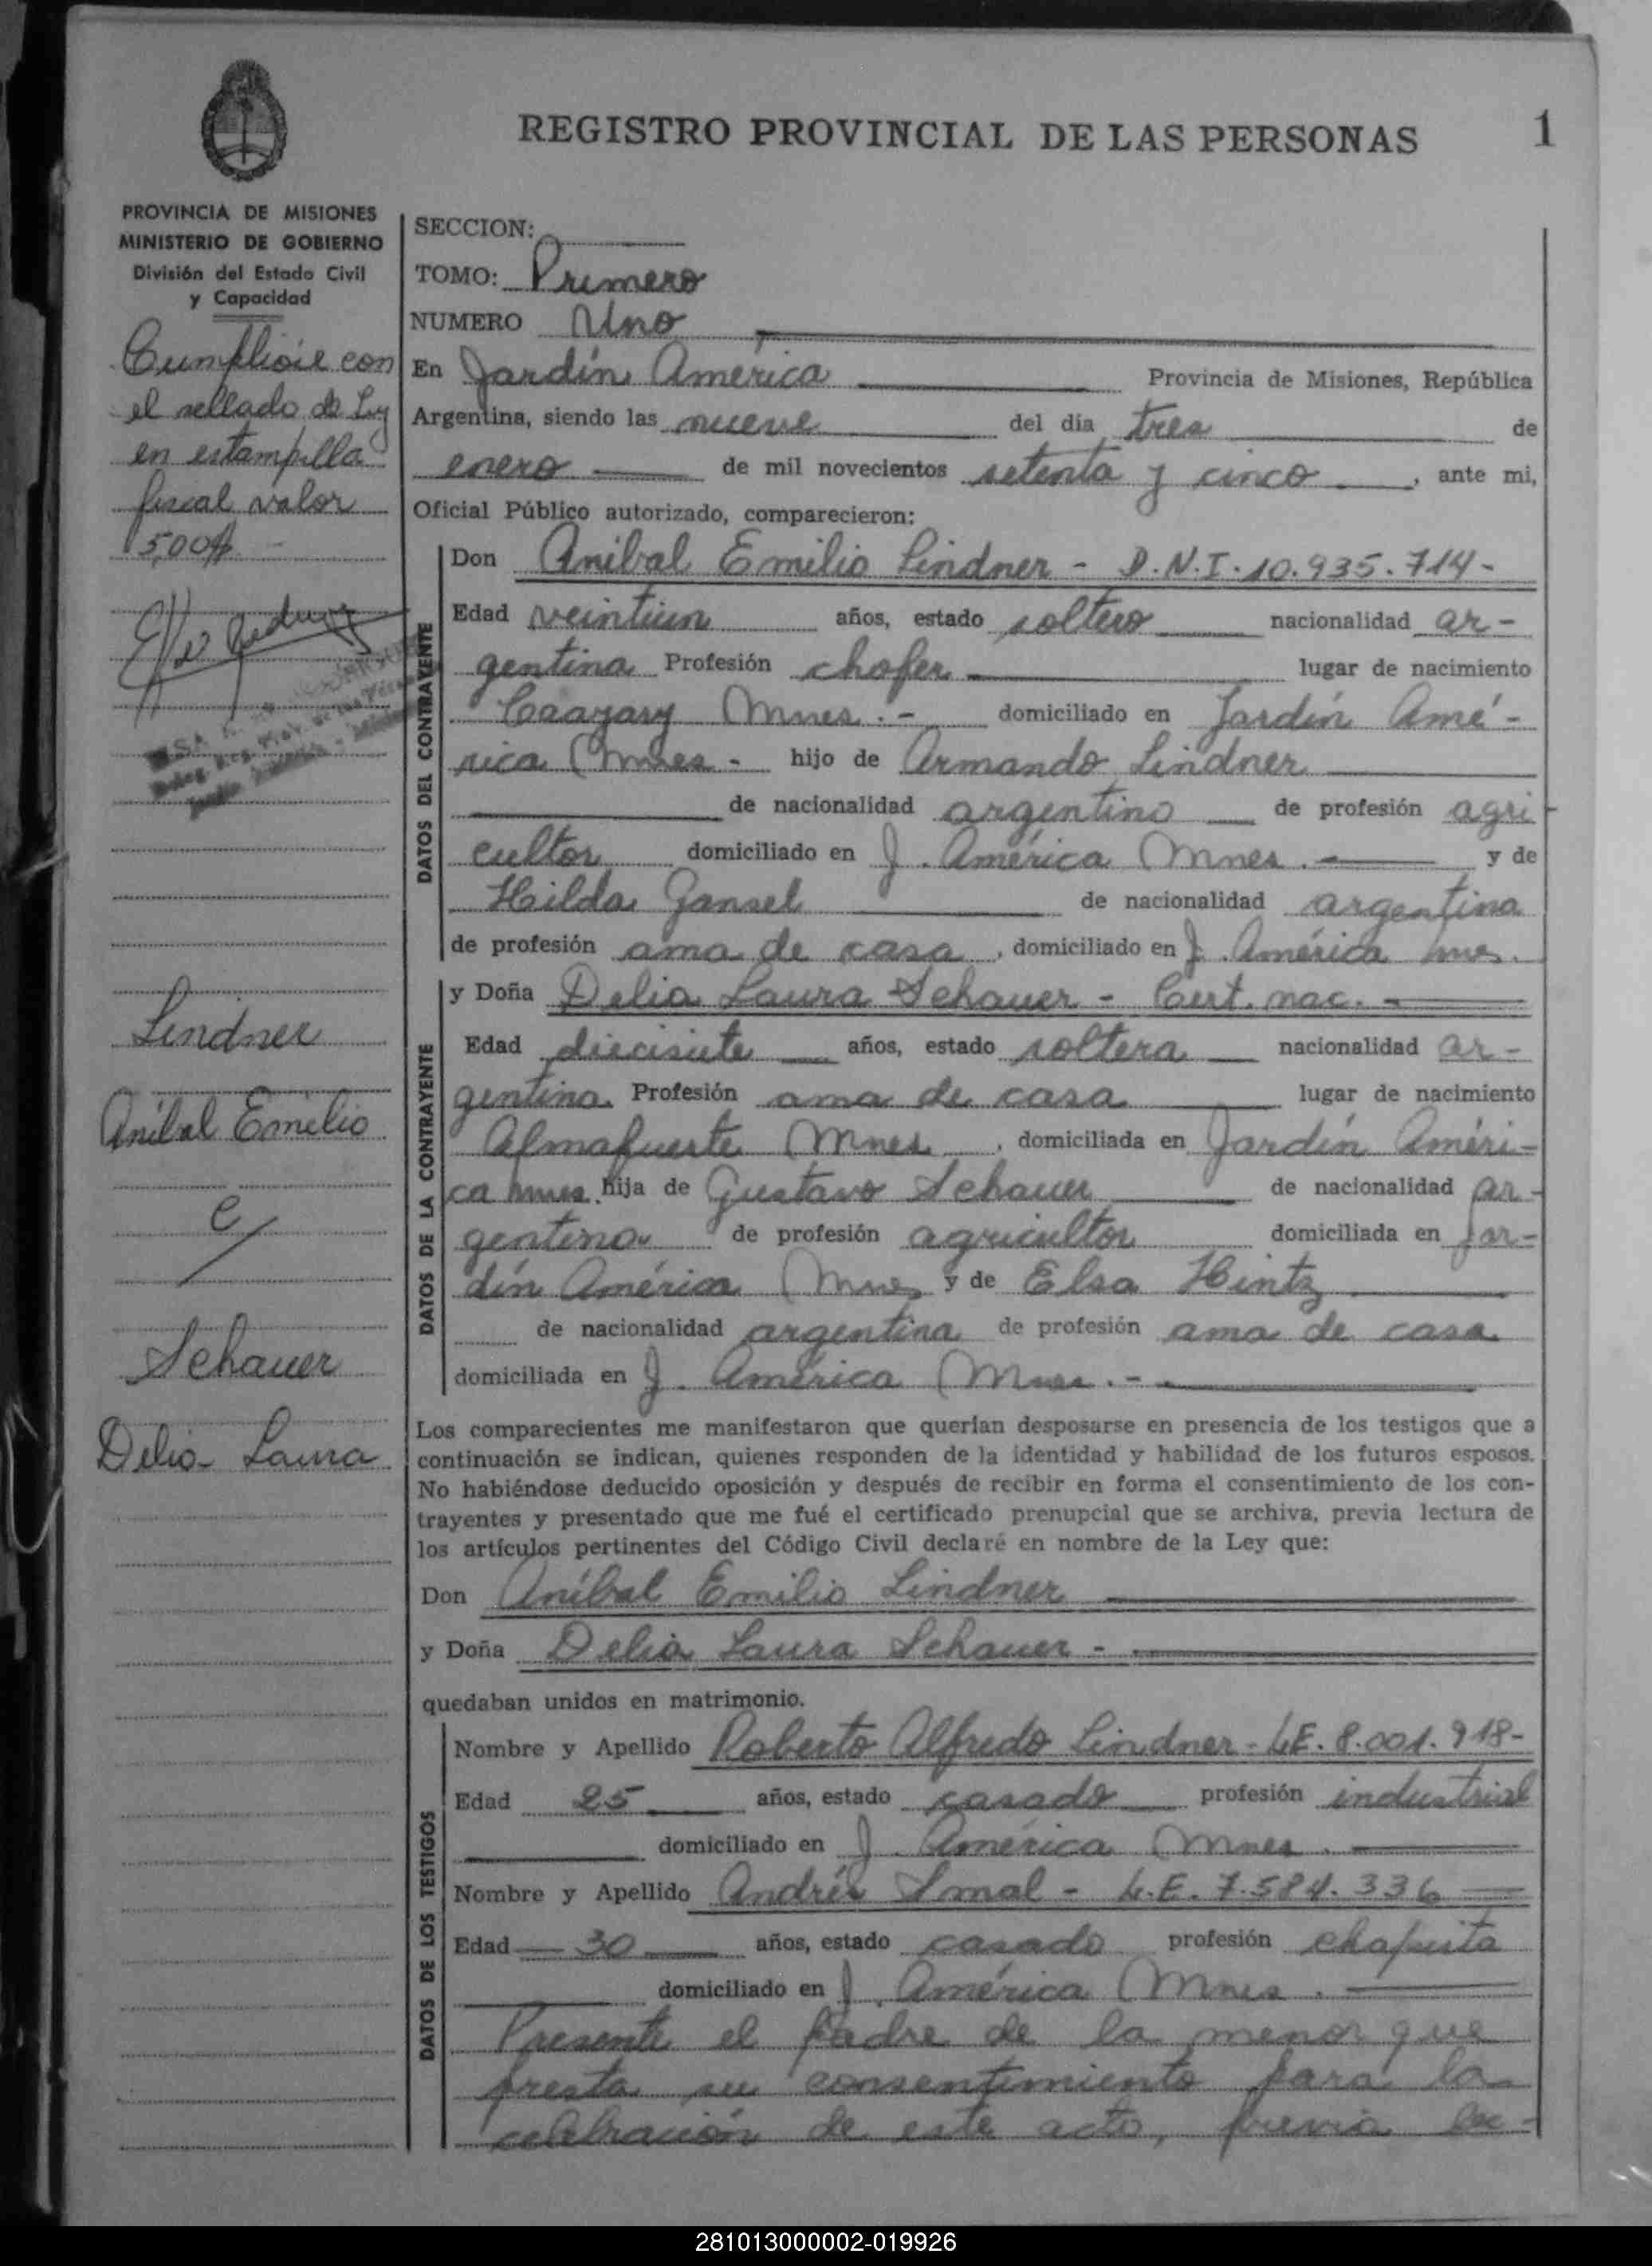 REGISTRO PROVINCIAL DE LAS PERSONAS
1
PROVINCIA DE MISIONES
MINISTERIO DE GOBIERNO
División del Estado Civil
y Capacidad
Cumplióse con
el sellado de Ley
en estampilla
fiscal valor
5,00$ -
Lindner
Aníbal Emilio
e/
Schauer
Delia Laura
SECCION:
TOMO: Primero
NUMERO Uno
En Jardín América Provincia de Misiones, República
Argentina, siendo las nueve del día tres de
enero de mil novecientos setenta y cinco, ante mi,
Oficial Público autorizado, comparecieron:
DATOS DEL CONTRAYENTE
Don Anibal Emilio Lindner - D.N.I. 10.935.714-
Edad veintiun años, estado soltero nacionalidad ar-
gentina Profesión chofer lugar de nacimiento
Caazary Mnes. - domiciliado en Jardín Amé-
rica Mnes - hijo de Armando Lindner
de nacionalidad argentino de profesión agri-
cultor domiciliado en J. América Mnes. - y de
Hilda Gansel de nacionalidad argentina
de profesión ama de casa, domiciliado en J. América mes.
DATOS DE LA CONTRAYENTE
y Doña Delia Laura Schauer - Cert. nac. -
Edad diecisiete años, estado soltera nacionalidad ar-
gentina. Profesión ama de casa lugar de nacimiento
Almafuerte Mnes, domiciliada en Jardín Améri-
ca Mnes. hija de Gustavo Schauer de nacionalidad ar-
gentino de profesión agricultor domiciliada en Jar-
dín América Mnes y de Elsa Hintz
de nacionalidad argentina de profesión ama de casa
domiciliada en J. América Mnes. - -
Los comparecientes me manifestaron que querían desposarse en presencia de los testigos que a
continuación se indican, quienes responden de la identidad y habilidad de los futuros esposos.
No habiéndose deducido oposición y después de recibir en forma el consentimiento de los con-
trayentes y presentado que me fué el certificado prenupcial que se archiva, previa lectura de
los artículos pertinentes del Código Civil declaré en nombre de la Ley que:
Don Aníbal Emilio Lindner
y Doña Delia Laura Schauer -
quedaban unidos en matrimonio.
DATOS DE LOS TESTIGOS
Nombre y Apellido Roberto Alfredo Lindner - L.E. 8.001.918-
Edad 25 años, estado casado profesión industrial
domiciliado en J. América Mnes.
Nombre y Apellido Andrés Smal - L.E. 7.584.336
Edad 30 años, estado casado profesión chapista
domiciliado en J. América Mnes.
Presente el padre de la menor que
presta su consentimiento para la
celebración de este acto, previa lec-
281013000002-019926